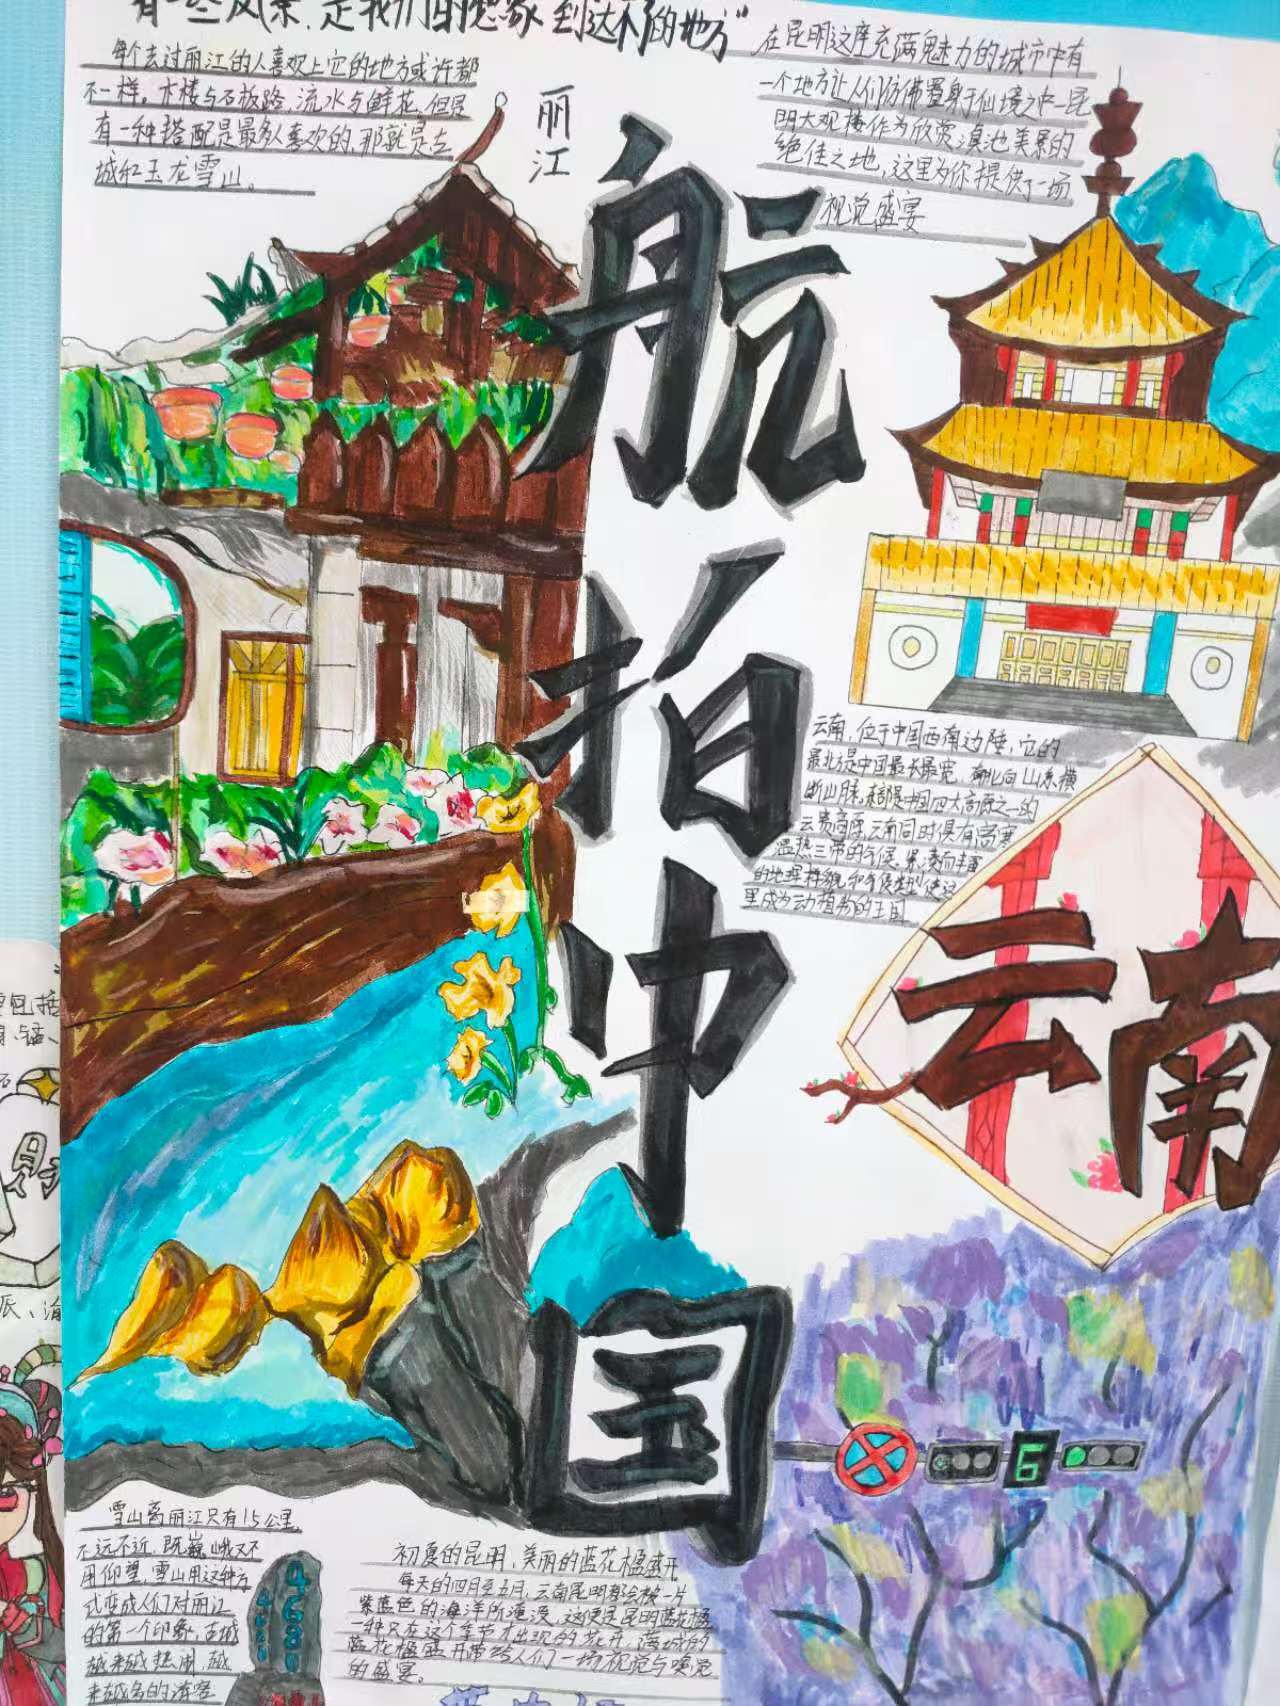 有一些风景,是我们的想象到达不了的地方"
每个去过丽江的人喜欢上它的地方或许都
不一样。木楼与石板路,流水与鲜花,但是
有一种搭配是最多人喜欢的,那就是古
城和玉龙雪山。
丽江
在昆明这座充满魅力的城市中有
一个地方让人们仿佛置身于仙境之中-昆
明大观楼作为欣赏滇池美景的
绝佳之地,这里为你提供了一场
视觉盛宴
航拍中国
云南,位于中国西南边陲,它的
最北是中国最长最宽,南北向山系横
断山脉,东部是中国四大高原之一的
云贵高原,云南同时具有高寒
温热三带的气候,
的地理样貌和气候类型使这
里成为动植物的王国
云南
6
雪山离丽江只有15公里,
不远不近,既巍峨又不
用仰望,雪山用这种方
式变成人们对丽江
的第一个印象,古城
越来越热闹,越
来越多的游客
4680
初夏的昆明,美丽的蓝花楹盛开
每天的四月至五月,云南昆明都会被一片
紫蓝色的海洋所淹没,这便是昆明蓝花楹
一种只在这个季节才出现的花卉,满城的
蓝花楹盛开带给人们一场视觉与嗅觉
的盛宴。